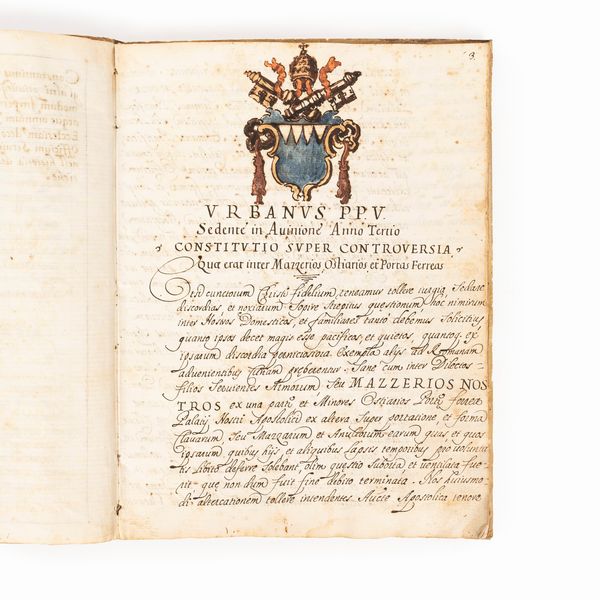 3
VRBANVS PP V.
Sedente in Avinione Anno Tertio
CONSTITVTIO SVPER CONTROVERSIA
Quæ erat inter Mazzerios Ostiarios et Portas Ferreas
Etsi cunctorum Christi fidelium, teneamur tollere iurgia, Sedare
discordias, et noxiarum Sopire Strepitus questionum, hoc nimirum
inter Nostros Domesticos, et familiares tanto debemus Solicitius
quanto ipsos decet magis esse pacificos, et quietos, quantoq. ex
ipsorum discordia perniciosiora Exempla alijs ad Romanam
advenientibus Curiam preberentur. Sane cum inter Dilectos
filios Servientes Armorum Seu MAZZERIOS NOS
TROS ex una parte et Minores Ostiarios Portæ ferreæ
Palatij Nostri Apostolici ex altera Super portatione, et forma
Clavarum Seu Mazzarum et
ipsarum quibus hijs, et aliquibus lapsis temporibus pro volunta
tis libito deferre Solebant, olim questio Suborta et ventilata fue
rit que non dum fuit fine debito terminata. Nos huiusmo
di altercationem tollere intendentes. Aucte Apostolica tenore